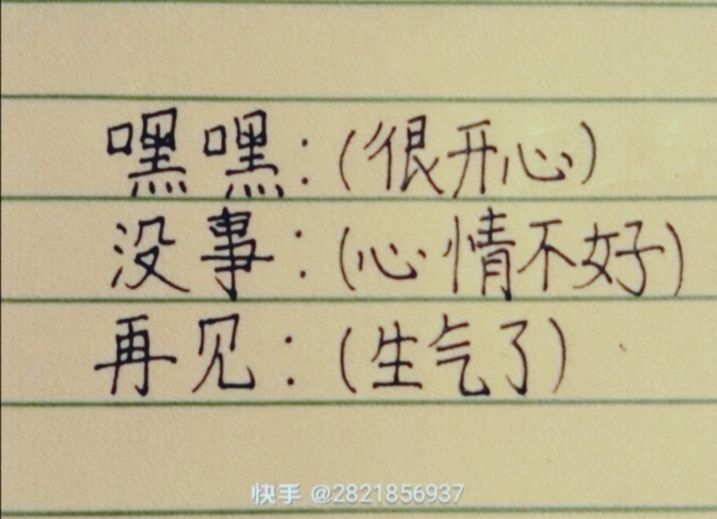 嘿嘿：(很开心)
没事：(心情不好)
再见：(生气了)
快手 @2821856937